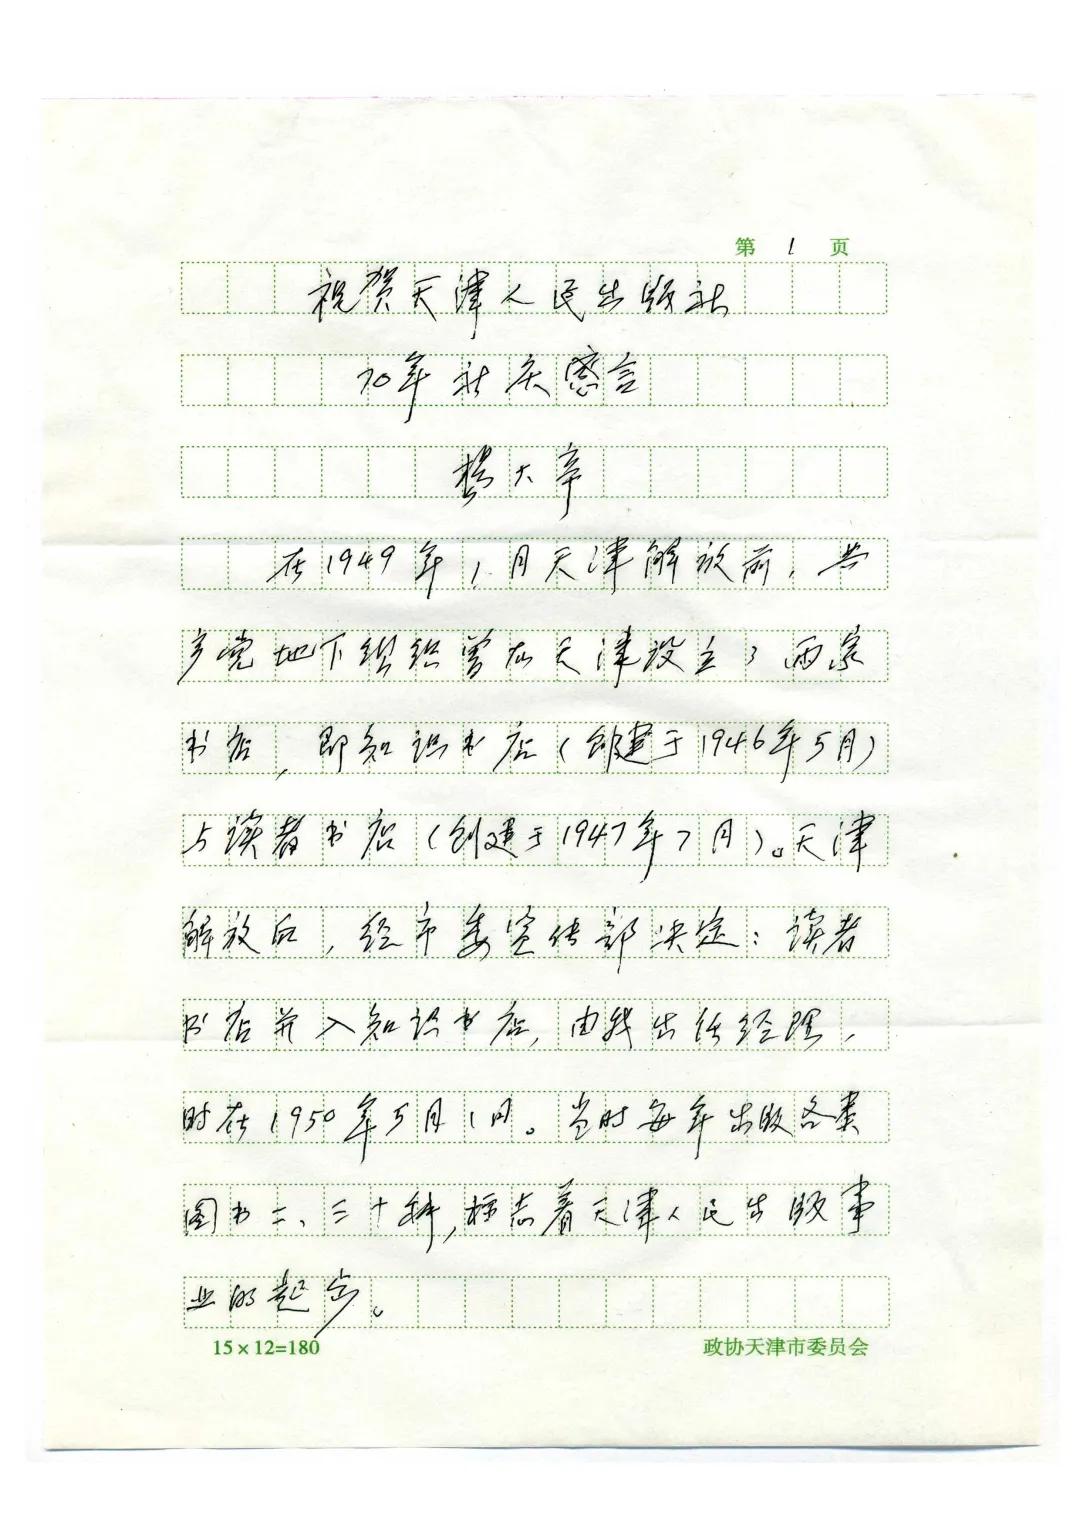 第 1 页
祝贺天津人民出版社
70年社庆感言
杨大辛
在1949年1月天津解放前，共
产党地下组织曾在天津设立了两家
书店，即知识书店（创建于1946年5月）
与读者书店（创建于1947年7月）。天津
解放后，经市委宣传部决定：读者
书店并入知识书店，由我出任经理，
时在1950年5月1日。当时每年出版各类
图书二、三十种，标志着天津人民出版事
业的起步。
15×12=180
政协天津市委员会